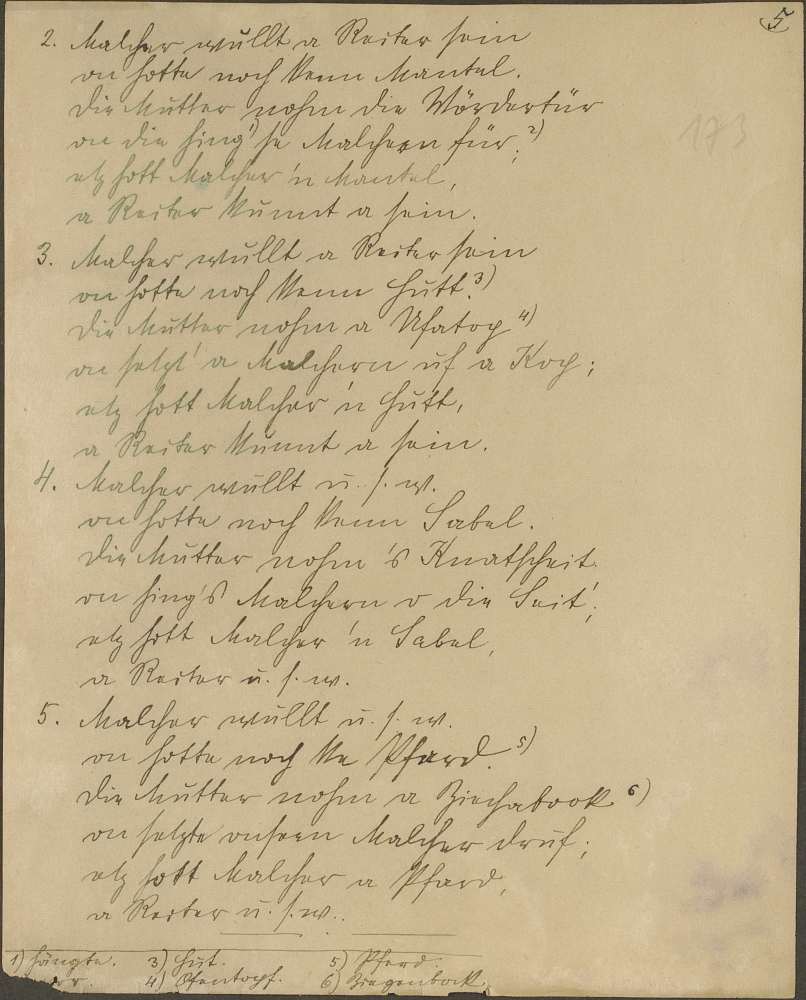 5
2. Malcher wullt a Reiter sein
173
on hotte noch kenn Mantel.
Die Mutter nohm die Wördertür
on die hing¹) se Malchern für;²)
etz hott Malcher 'n Mantel,
a Reiter kunnt a sein.
3. Malcher wullt a Reiter sein
on hotte noch kenn Hutt.³)
Die Mutter nohm a Ufatop⁴)
on setzt' a Malchern uf a Kop;
etz hott Malcher 'n Hutt,
a Reiter kunnt a sein.
4. Malcher wullt u. s. w.
on hotte noch kenn Sabel.
Die Mutter nohm 's Knatscheit
on hing's Malchern o die Seit';
etz hott Malcher 'n Sabel,
a Reiter u. s. w.
5. Malcher wullt u. s. w.
on hotte noch ke Pfard.⁵)
Die Mutter nohm a Ziechabook⁶)
on setzte onsern Malcher druf;
etz hott Malcher a Pfard,
a Reiter u. s. w..
1) hängte. 3) Hut. 5) Pferd.
4) Ofentopf. 6) Ziegenbock.